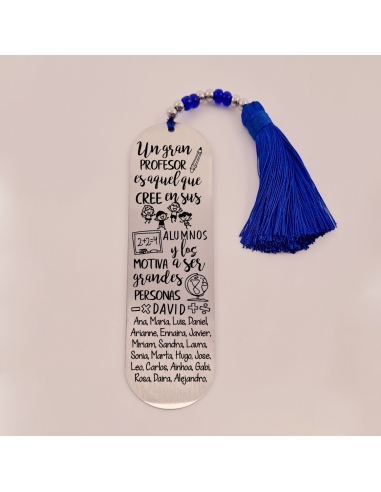 Un gran
PROFESOR
es aquel que
CREE en sus
ALUMNOS
2+2=4
y los
MOTIVA a ser
grandes
PERSONAS
- × DAVID + ÷
Ana, María, Luis, Daniel,
Arianne, Ennaira, Javier,
Miriam, Sandra, Laura,
Sonia, Marta, Hugo, Jose,
Leo, Carlos, Ainhoa, Gabi,
Rosa, Daira, Alejandro,